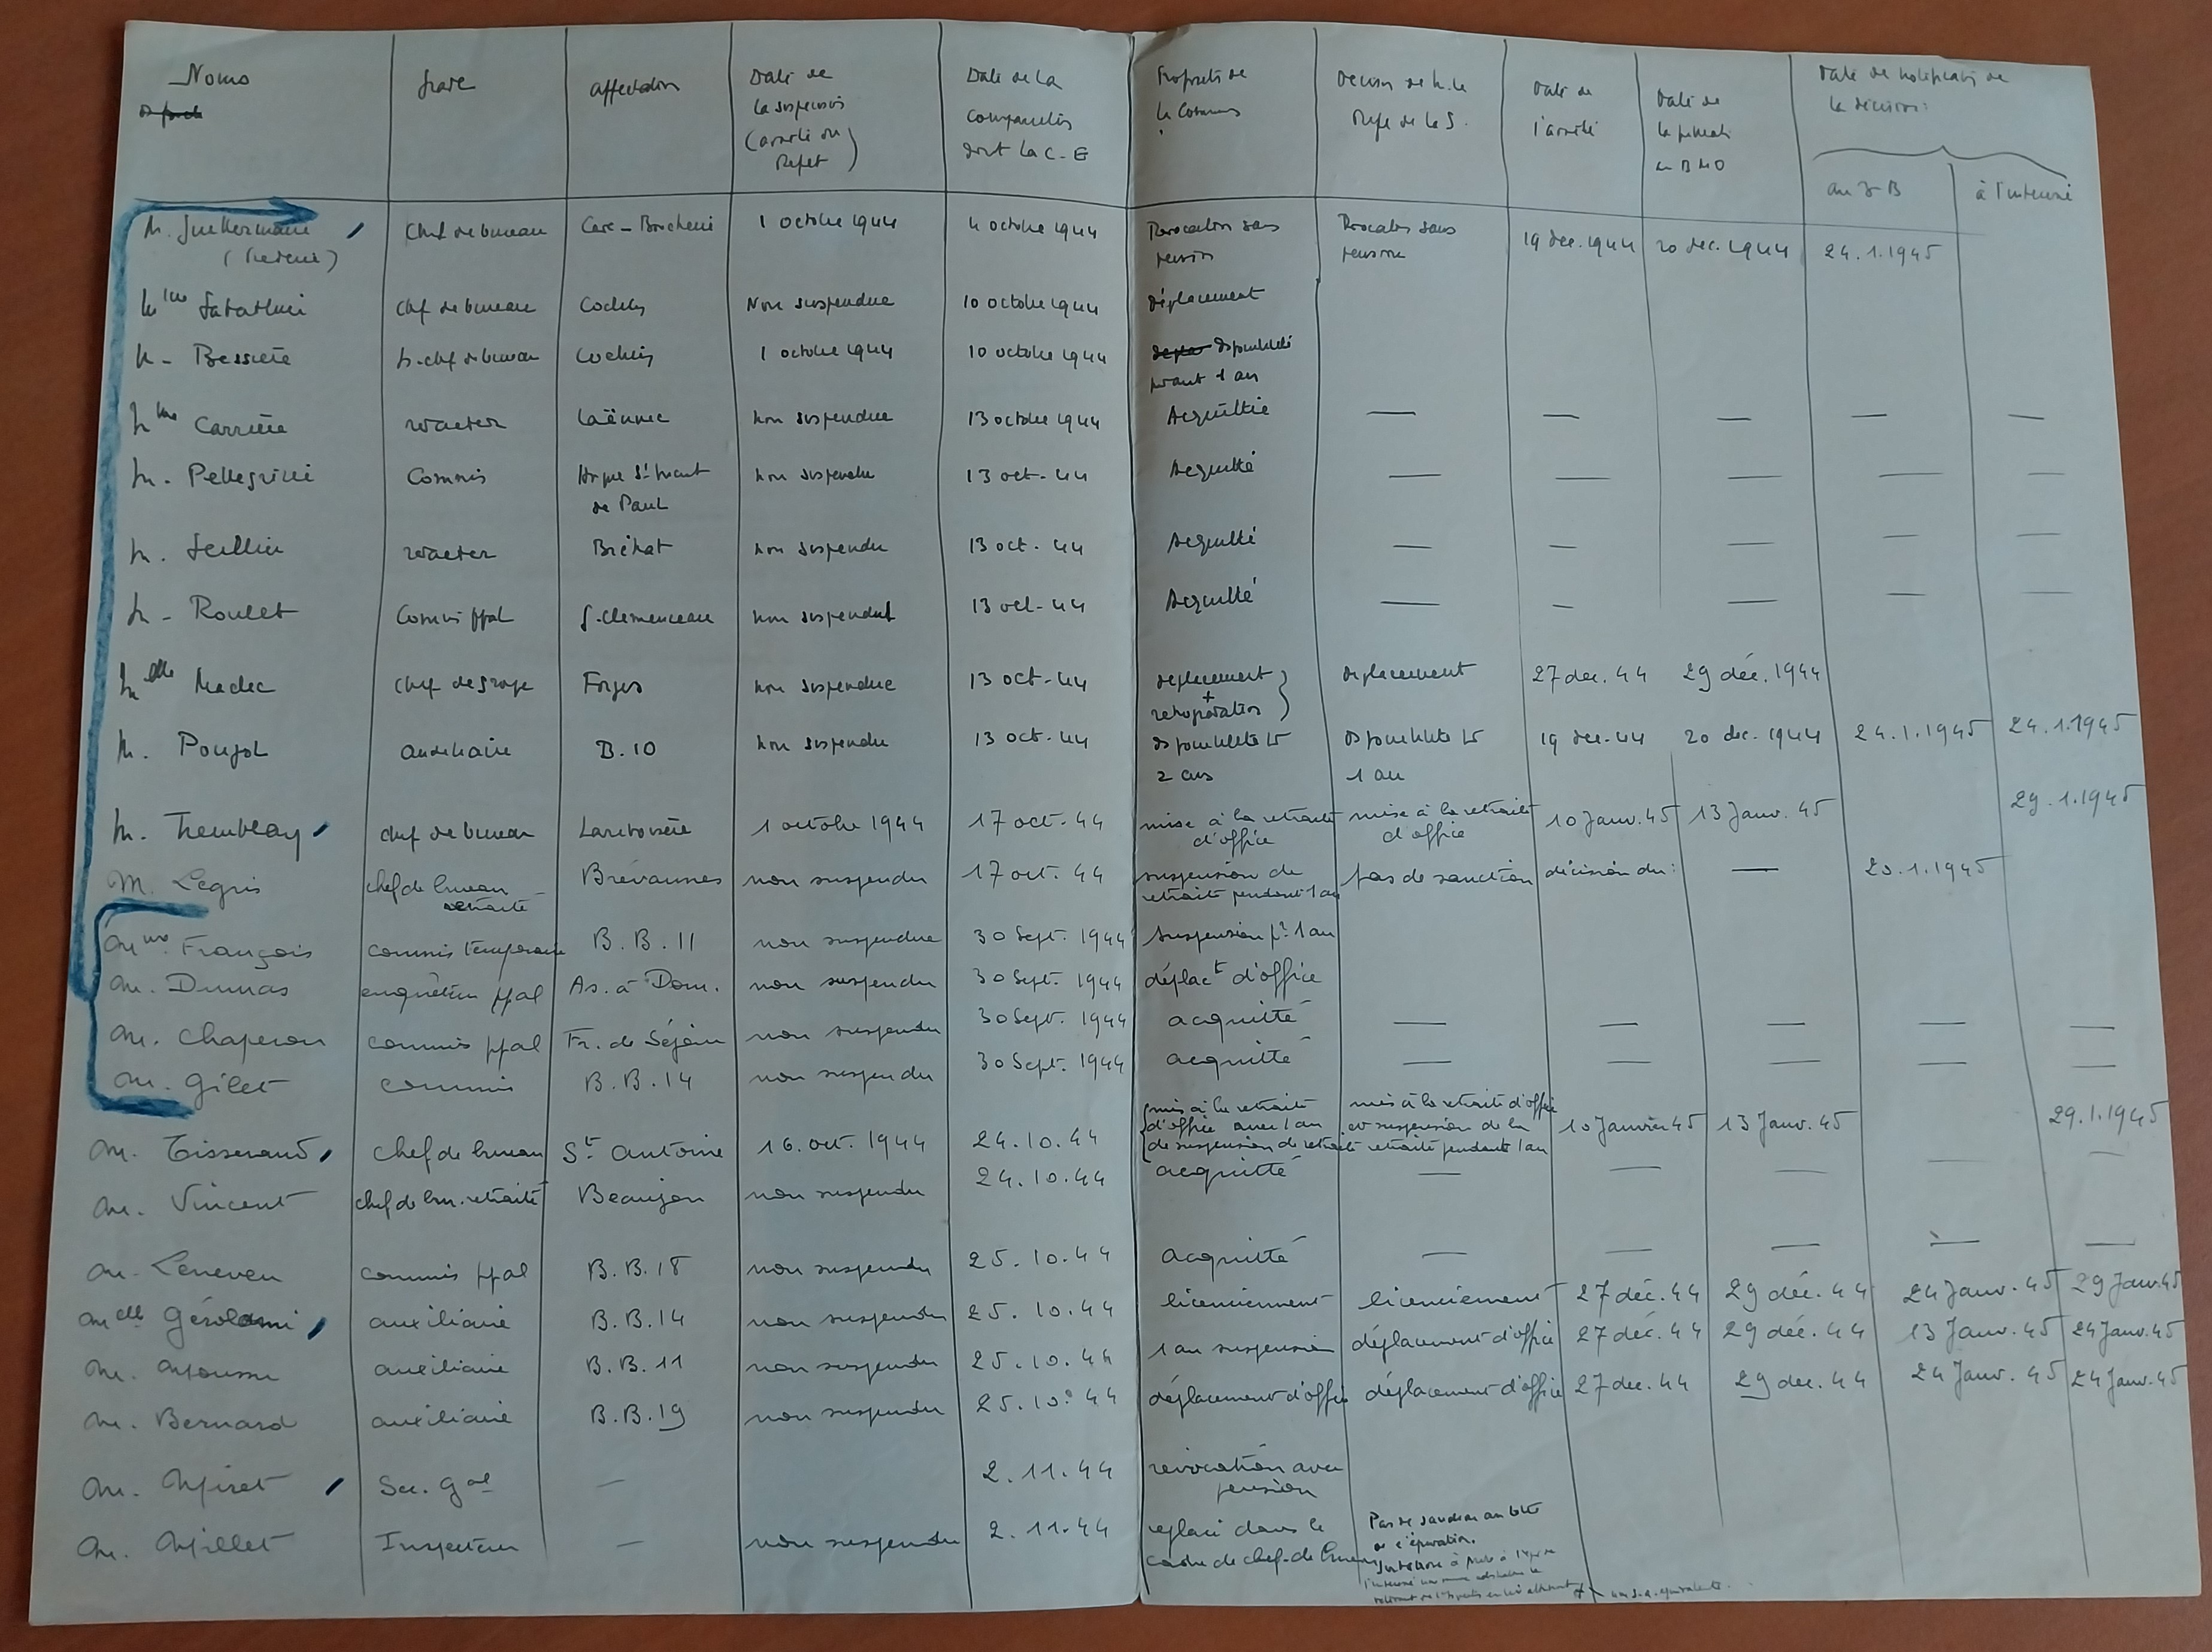 Noms Grade Affectation Date de la suspension (arrêté du Préfet) Date de la comparution dvt la C.E Propositi de la Commis Décision de M. le Préfet de la S. Date de l'arrêté Date de la publicati au BMO Date de notification de la décision:
au D B à l'intéressé
M. (retraité) chef de bureau Care-Brocherie 1 octobre 1944 4 octobre 1944 Révocation sans pension Révocation sans pension 19 dec. 1944 20 dec. 1944 24.1.1945
Mme chef de bureau Cochin Non suspendue 10 octobre 1944 déplacement
M. Bessière s-chef de bureau Cochin 1 octobre 1944 10 octobre 1944 disponibilité pdant 1 an
Mme Carrière rédacteur Laënnec non suspendue 13 octobre 1944 Acquittée — — — — —
M. Pellegrini Commis St Vincent de Paul non suspendu 13 oct-44 Acquitté — — — — —
M. rédacteur Bréhat non suspendu 13 oct. 44 Acquitté — — — — —
M. Roulet Commis ppal G. Clemenceau non suspendu 13 oct-44 Acquitté — — — — —
Melle Madec chef de groupe Forges non suspendue 13 oct-44 déplacement + rétrogradation déplacement 27 dec. 44 29 déc. 1944
M. Poujol auxiliaire B.10 non suspendu 13 oct-44 disponibilité 2 ans disponibilité 1 an 19 dec-44 20 dec. 1944 24.1.1945 24.1.1945
M. Tremblay chef de bureau Lariboisière 1 octobre 1944 17 oct-44 mise à la retraite d'office mise à la retraite d'office 10 Janv. 45 13 Janv. 45 29.1.1945
M. Legris chef de bureau retraité Brévannes non suspendu 17 oct. 44 suspension de retraite pendant 1 an pas de sanction décision du: — 23.1.1945
Mme François commis temporaire B.B.11 non suspendue 30 Sept. 1944 Suspension pr 1 an
M. Dumas enquêteur ppal As. à Dom. non suspendu 30 Sept. 1944 déplact d'office
M. Chaperon commis ppal Fr. de Séjour non suspendu 30 Sept. 1944 acquitté — — — — —
M. Gilet commis B.B.14 non suspendu 30 Sept. 1944 acquitté — — — — —
M. Tisserand chef de bureau St Antoine 16. oct. 1944 24.10.44 mis à la retraite d'office avec 1 an de suspension de retraite mis à la retraite d'office et suspension de la retraite pendant 1 an 10 Janvier 45 13 Janv. 45 29.1.1945
M. Vincent chef de bur. retraité Beaujon non suspendu 24.10.44 acquitté — — — — —
M. Leneveu commis ppal B.B.18 non suspendu 25.10.44 acquitté — — — — —
Melle Gérolami auxiliaire B.B.14 non suspendue 25.10.44 licenciement licenciement 27 déc. 44 29 déc. 44 24 Janv. 45 29 Janv. 45
M. auxiliaire B.B.11 non suspendu 25.10.44 1 an suspension déplacement d'office 27 déc. 44 29 déc. 44 13 Janv. 45 24 Janv. 45
M. Bernard auxiliaire B.B.19 non suspendu 25.10.44 déplacement d'office déplacement d'office 27 dec. 44 29 dec. 44 24 Janv. 45 24 Janv. 45
M. Sec. Gal — 2.11.44 révocation avec pension
M. Millet Inspecteur — non suspendu 2.11.44 replacé dans le cadre de chef de bureau Pas de sanction au titre de l'épuration.